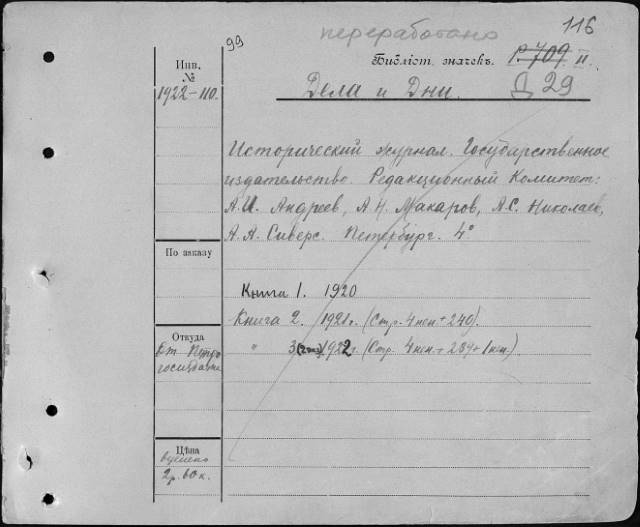 переработано 116
99
Инв.
№
1922-110.
Библіот. значекъ. Р.709. II.
Дела и Дни. Д 29
Исторический журнал. Государственное
издательство. Редакционный Комитет:
А.И. Андреев, А.Н. Макаров, А.С. Николаев,
А.А. Сиверс. Петербург. 4°
По заказу
Книга 1. 1920
Книга 2. 1921 г. (Стр. 4 нен + 240).
Откуда
От Петро
госиздата
" 3 1922 г. (Стр. 4 нен + 239 + 1 нен.)
Цѣна
2 р. 60 к.